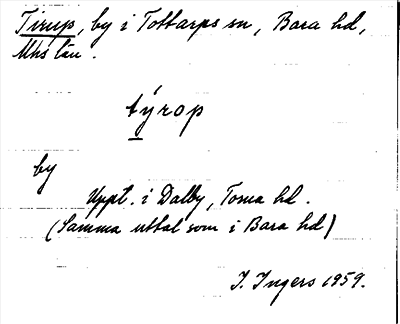 Tirup, by i Tottarps sn, Bara hd,
Mhs län.
týrop
by
Uppt. i Dalby, Torna hd.
(Samma uttal som i Bara hd)
I. Ingers 1959.